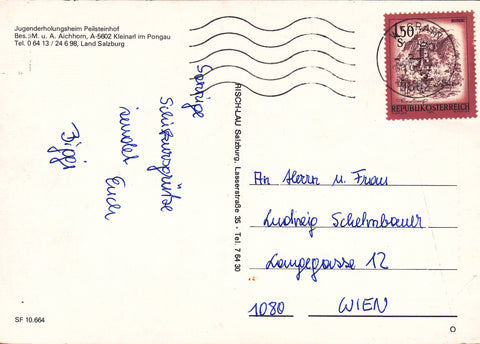 Jugenderholungsheim Peilsteinhof
Bes.: M. u. A. Aichhorn, A-5602 Kleinarl im Pongau
Tel. 0 64 13 / 24 6 98, Land Salzburg
S 1.50
REPUBLIK ÖSTERREICH
Sonnige
Schikursgrüße
sendet Euch
RISCHLAU Salzburg, Lasserstraße 35 - Tel. 7 64 30
An Herrn u. Frau
Ludwig Schelmbauer
Langegasse 12
1080 WIEN
SF 10.664